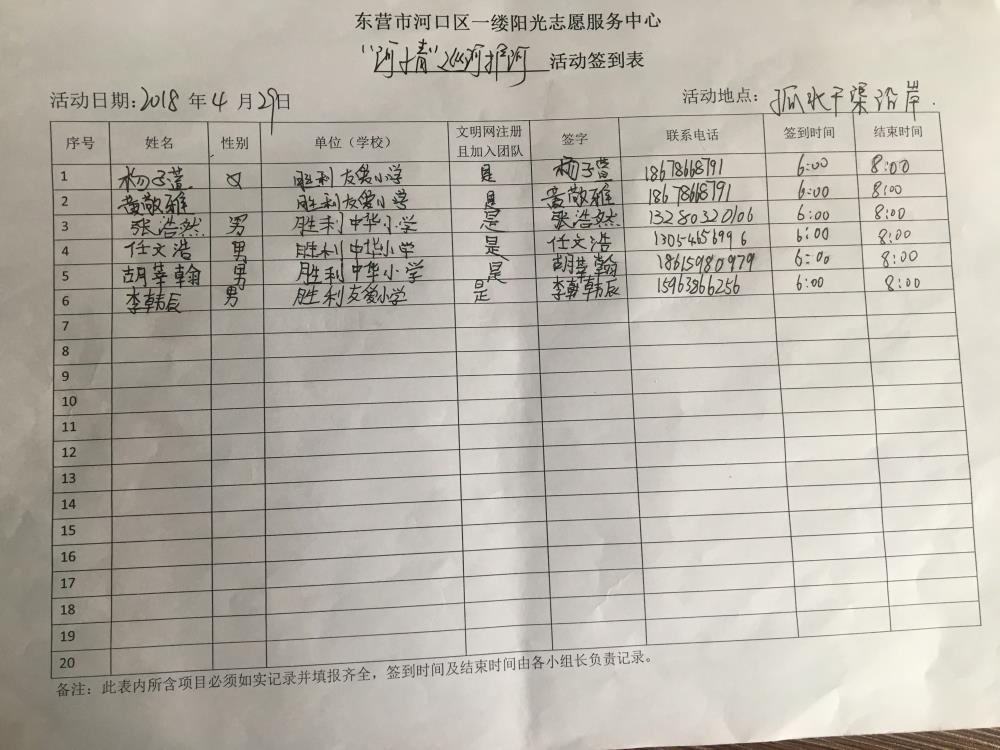 东营市河口区一缕阳光志愿服务中心
“河情”巡河护河 活动签到表
活动日期:2018 年 4 月 29日 活动地点: 孤水干渠沿岸.
序号 姓名 性别 单位（学校） 文明网注册且加入团队 签字 联系电话 签到时间 结束时间
1 杨子萱 女 胜利友爱小学 是 杨子萱 18678668791 6:00 8:00
2 黄敬雅 胜利友爱小学 是 黄敬雅 18678668791 6:00 8:00
3 张浩然 男 胜利中华小学 是 张浩然 13280320106 6:00 8:00
4 任文浩 男 胜利中华小学 是 任文浩 13054656996 6:00 8:00
5 胡莘翰 男 胜利中华小学 是 胡莘翰 18615980979 6:00 8:00
6 李韩辰 男 胜利友爱小学 是 李韩辰 15963866256 6:00 8:00
7
8
9
10
11
12
13
14
15
16
17
18
19
20
备注：此表内所含项目必须如实记录并填报齐全，签到时间及结束时间由各小组长负责记录。